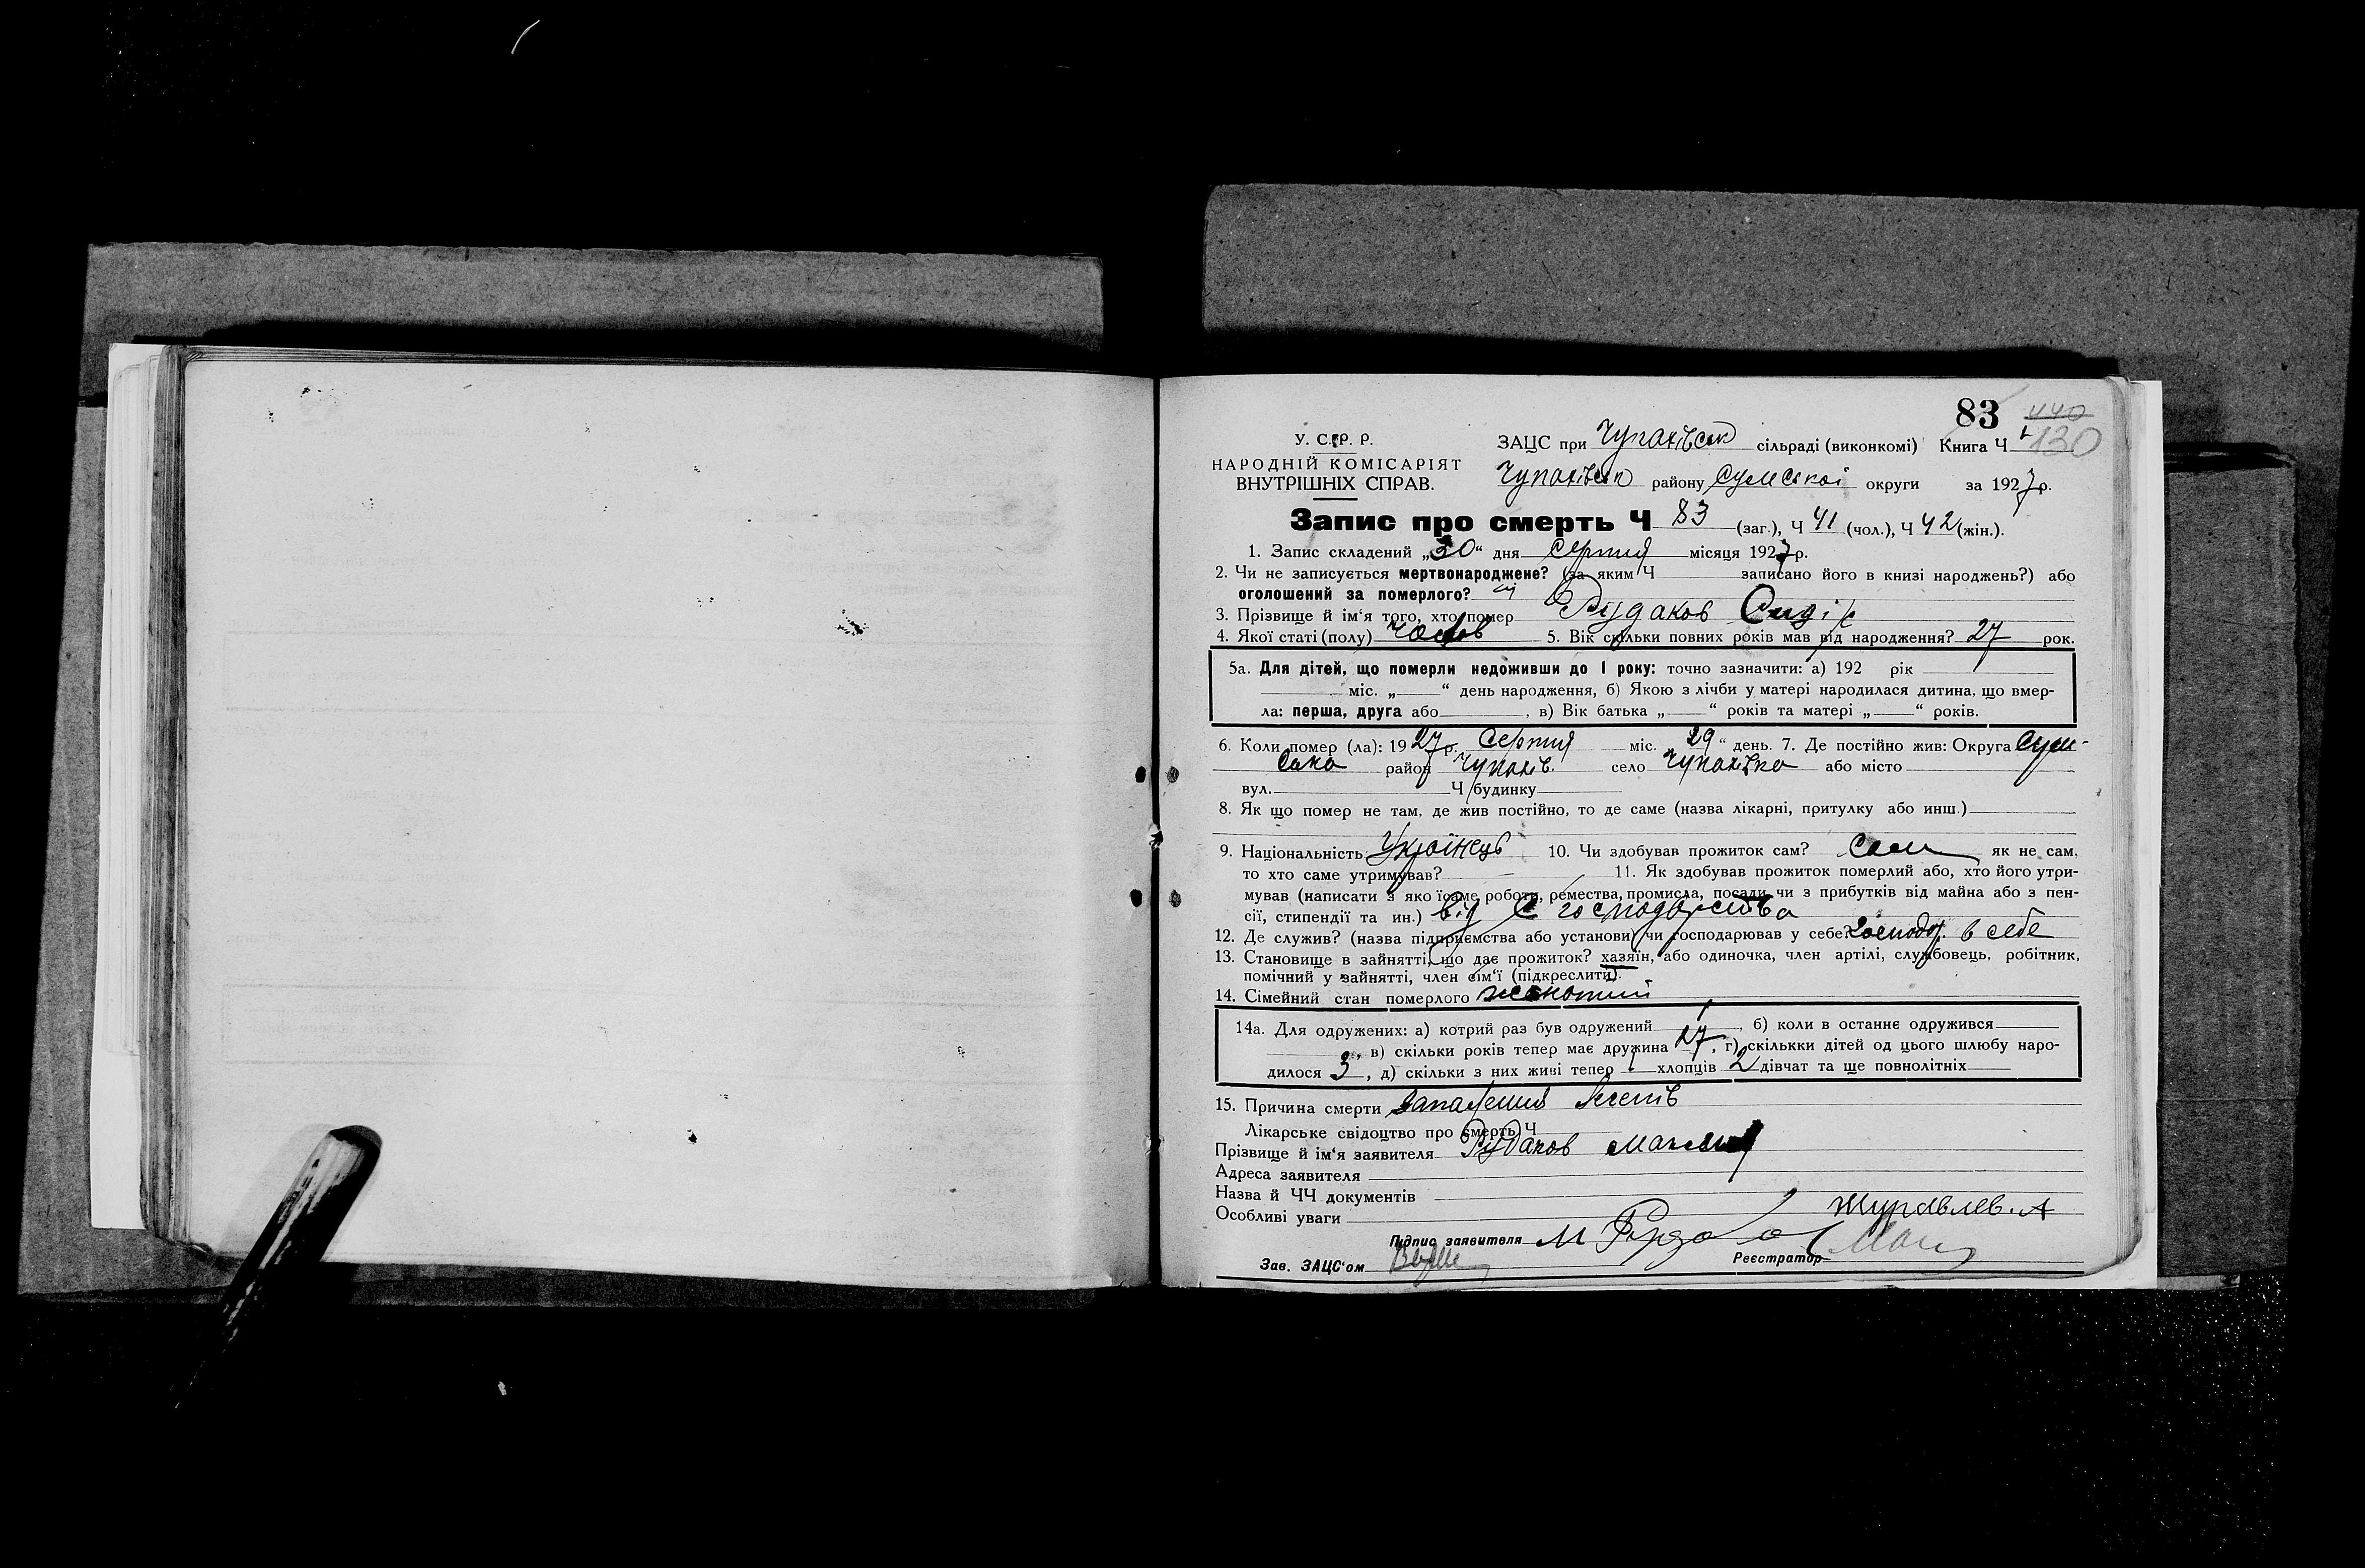 83 440
У. С. Р. Р. ЗАЦС при Чупахівськ сільраді (виконкомі) Книга Ч 130
НАРОДНІЙ КОМІСАРІЯТ
ВНУТРІШНІХ СПРАВ. Чупахівськ району Сумської округи за 1927 р.
Запис про смерть Ч 83 (заг.), Ч 41 (чол.), Ч 42 (жін.).
1. Запис складений „30“ дня серпня місяця 1927 р.
2. Чи не записується мертвонароджене? (за яким Ч записано його в книзі народжень?) або
оголошений за померлого? ні
3. Прізвище й ім‘я того, хто помер Рудаков Сидір
4. Якої статі (полу) чолов 5. Вік скільки повних років мав від народження? 27 рок.
5а. Для дітей, що померли недоживши до 1 року: точно зазначити: а) 192 рік
міс. „ “ день народження, б) Якою з лічби у матері народилася дитина, що вмер-
ла: перша, друга або , в) Вік батька „ “ років та матері „ “ років.
6. Коли помер (ла): 1927 р. серпня міс. „29“ день. 7. Де постійно жив: Округа Сум-
ська район Чупахів. село Чупахівка або місто
вул. Ч будинку
8. Як що помер не там, де жив постійно, то де саме (назва лікарні, притулку або инш.)
9. Національність Українець 10. Чи здобував прожиток сам? сам як не сам,
то хто саме утримував? 11. Як здобував прожиток померлий або, хто його утри-
мував (написати з яко їсаме роботи, ремества, промисла, посади чи з прибутків від майна або з пен-
сії, стипендії та ин.) від с господарства
12. Де служив? (назва підприємства або установи) чи господарював у себе? господар. в себе
13. Становище в зайнятті, що дає прожиток? хазяїн, або одиночка, член артілі, службовець, робітник,
помічний у зайнятті, член сім‘ї (підкреслити).
14. Сімейний стан померлого жонатий
14а. Для одружених: а) котрий раз був одружений 1, б) коли в останнє одружився
, в) скільки років тепер має дружина 27, г) скількки дітей од цього шлюбу наро-
дилося 3, д) скільки з них живі тепер 1 хлопців 2 дівчат та ще повнолітніх
15. Причина смерти Запалення легенів
Лікарське свідоцтво про смерть Ч
Прізвище й ім‘я заявителя Рудаков Максим
Адреса заявителя
Назва й ЧЧ документів
Особливі уваги Журавлев. А
Підпис заявителя М Рудаков
Зав. ЗАЦС‘ом Реєстратор